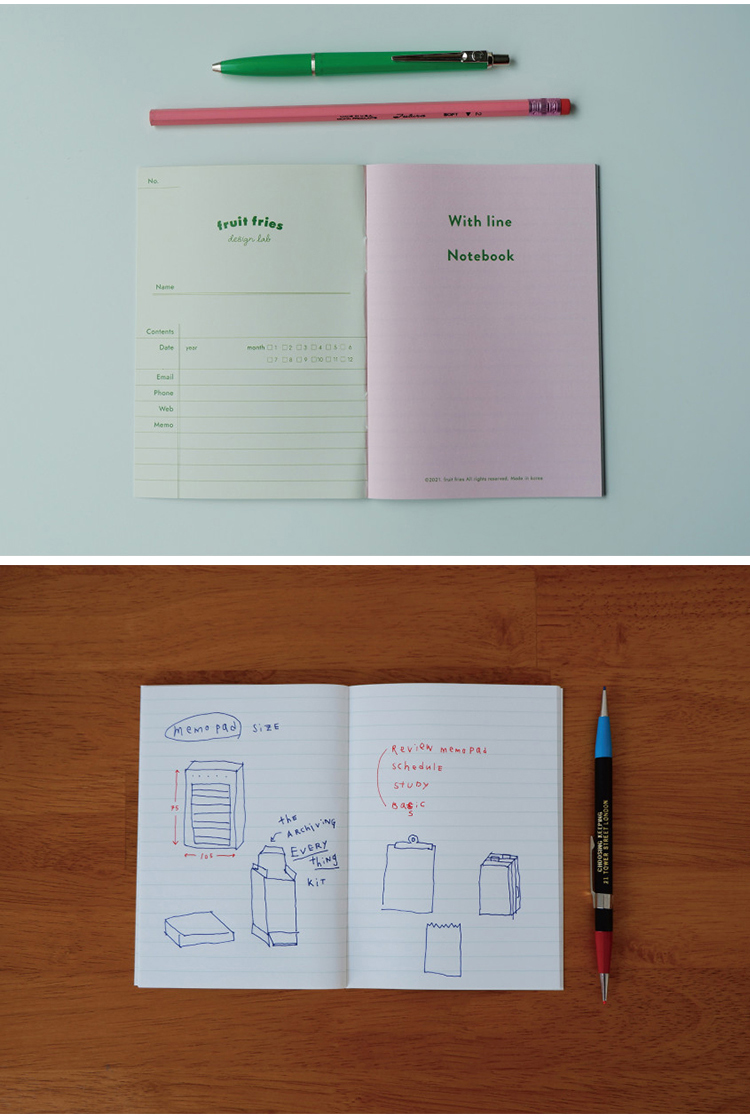 No.
fruit fries
design lab
Name
Contents
Date year month 1 2 3 4 5 6
7 8 9 10 11 12
Email
Phone
Web
Memo
With line
Notebook
©2021. fruit fries All rights reserved. Made in korea
memo pad SIZE
the
ARCHIVING
EVERY
thing
KIT
REVIEW memo pad
SCHEDULE
STUDY
BASIC
S
CHOOSING KEEPING
21 TOWER STREET LONDON